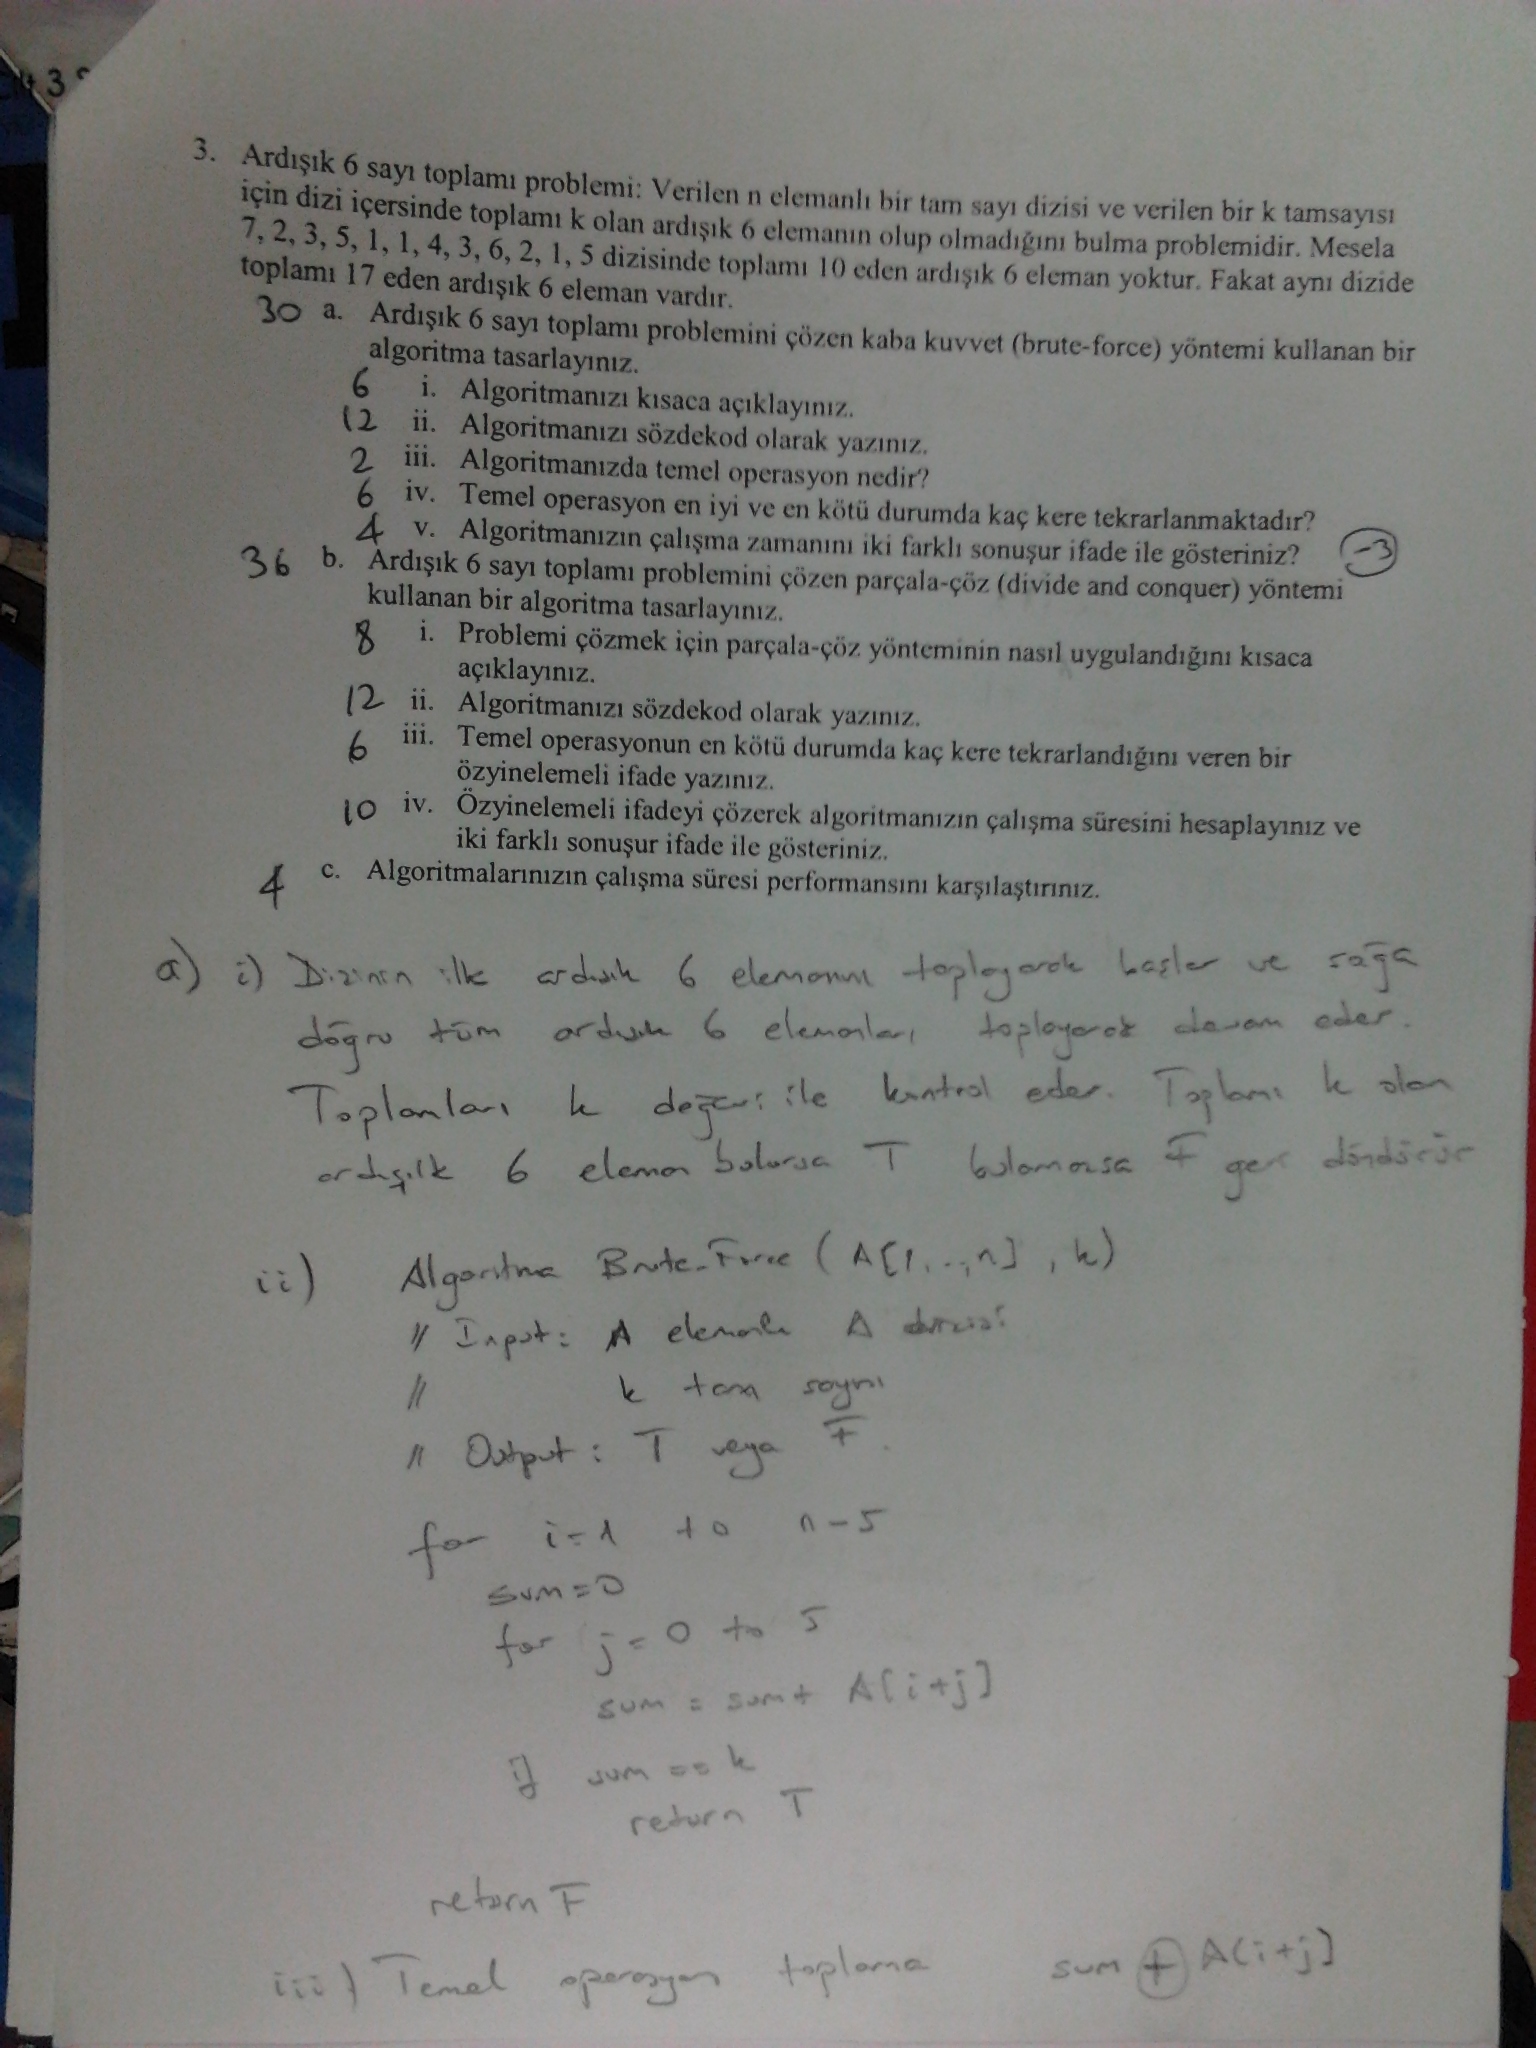 3. Ardışık 6 sayı toplamı problemi: Verilen n elemanlı bir tam sayı dizisi ve verilen bir k tamsayısı
için dizi içersinde toplamı k olan ardışık 6 elemanın olup olmadığını bulma problemidir. Mesela
7, 2, 3, 5, 1, 1, 4, 3, 6, 2, 1, 5 dizisinde toplamı 10 eden ardışık 6 eleman yoktur. Fakat aynı dizide
toplamı 17 eden ardışık 6 eleman vardır.
30 a. Ardışık 6 sayı toplamı problemini çözen kaba kuvvet (brute-force) yöntemi kullanan bir
algoritma tasarlayınız.
6 i. Algoritmanızı kısaca açıklayınız.
12 ii. Algoritmanızı sözdekod olarak yazınız.
2 iii. Algoritmanızda temel operasyon nedir?
6 iv. Temel operasyon en iyi ve en kötü durumda kaç kere tekrarlanmaktadır?
4 v. Algoritmanızın çalışma zamanını iki farklı sonuşur ifade ile gösteriniz? -3
36 b. Ardışık 6 sayı toplamı problemini çözen parçala-çöz (divide and conquer) yöntemi
kullanan bir algoritma tasarlayınız.
8 i. Problemi çözmek için parçala-çöz yönteminin nasıl uygulandığını kısaca
açıklayınız.
12 ii. Algoritmanızı sözdekod olarak yazınız.
6 iii. Temel operasyonun en kötü durumda kaç kere tekrarlandığını veren bir
özyinelemeli ifade yazınız.
10 iv. Özyinelemeli ifadeyi çözerek algoritmanızın çalışma süresini hesaplayınız ve
iki farklı sonuşur ifade ile gösteriniz.
4 c. Algoritmalarınızın çalışma süresi performansını karşılaştırınız.
a) i) Dizinin ilk ardışık 6 elemanını toplayarak başlar ve sağa
doğru tüm ardışık 6 elemanları toplayarak devam eder.
Toplamları k değeri ile kontrol eder. Toplamı k olan
ardışık 6 eleman bulursa T bulamazsa F geri döndürür
ii) Algoritma Brute-Force (A[1,..,n], k)
// Input: A elemanlı A dizisi
// k tam sayısı
// Output: T veya F.
for i=1 to n-5
sum=0
for j=0 to 5
sum = sum+ A[i+j]
if sum == k
return T
return F
iii) Temel operasyon toplama sum + A[i+j]